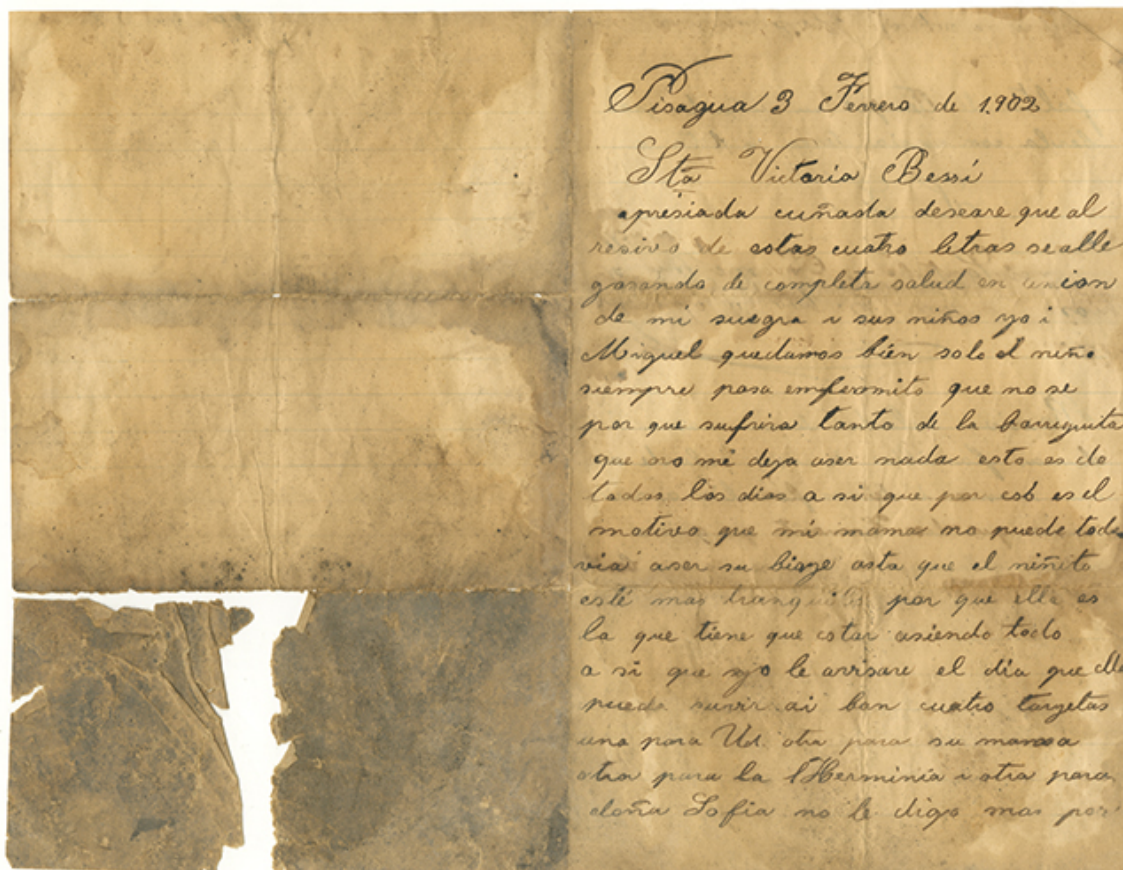 Pisagua 3 Ferrero de 1.902
Sta Victoria Bessi
apresiada cuñada deseare que al
resivo de estas cuatro letras se alle
gosando de completa salud en union
de mi suegra i sus niños yo i
Miguel quedamos bién solo el niño
siempre pasa enfermito que no se
por que sufrira tanto de la barriguita
que no me deja aser nada esto es de
todos los dias a si que por eso es el
motivo que mi mama no puede toda
via aser su biaje asta que el niñito
esté mas tranquilo por que ella es
la que tiene que estar asiendo todo
a si que yo le avisare el dia que ella
pueda ai ban cuatro targetas
una para Ud. otra para su mama
otra para la Herminia i otra para
doña Sofia no le digo mas por